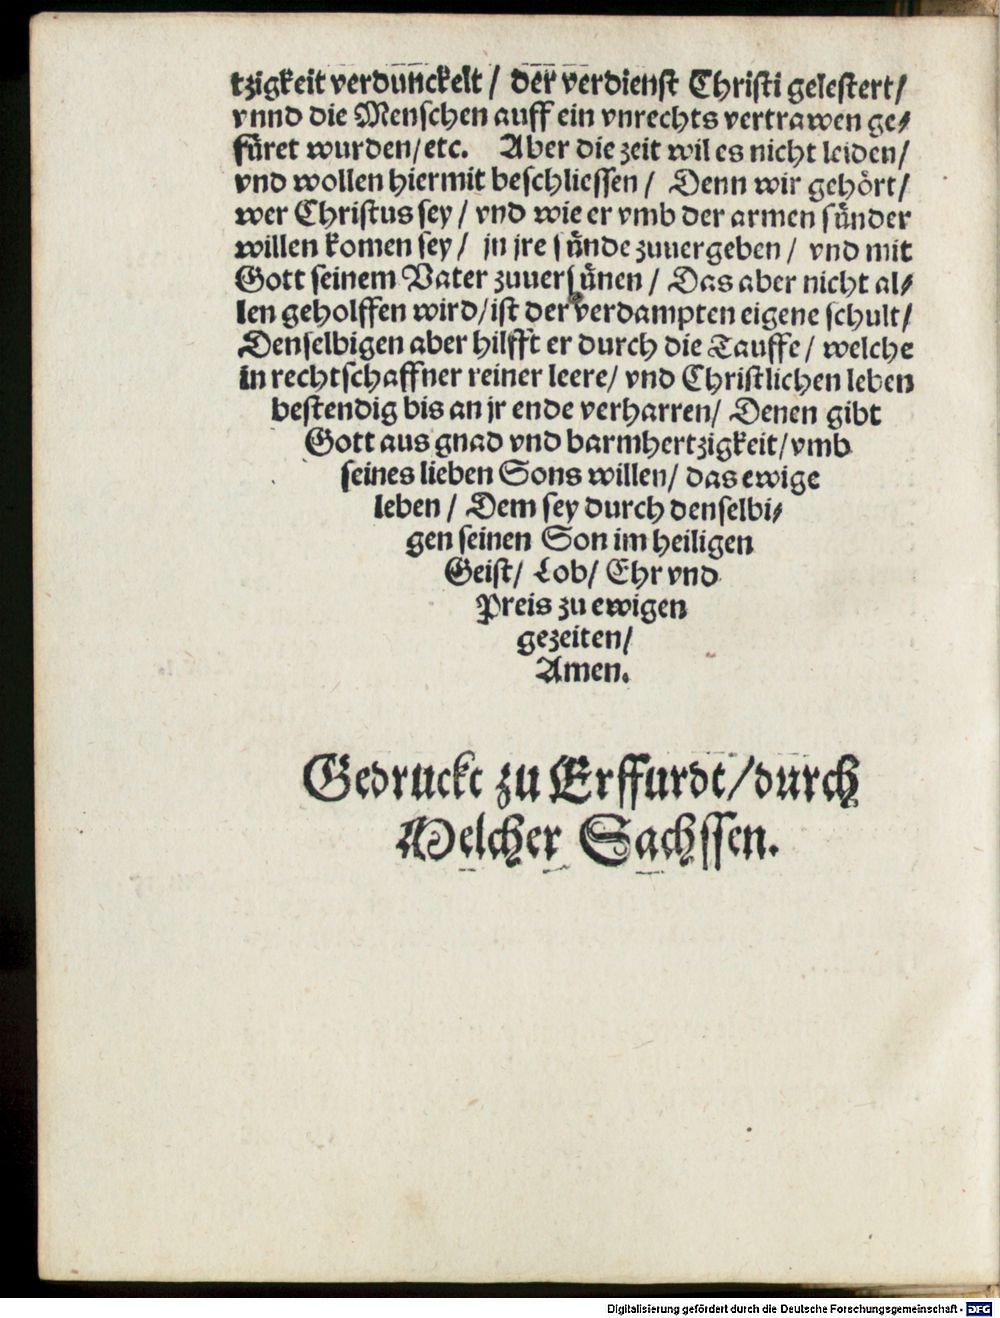 tzigkeit verdunckelt / der verdienst Christi gelestert /
vnnd die Menschen auff ein vnrechts vertrawen ge⸗
füret wurden / etc. Aber die zeit wil es nicht leiden /
vnd wollen hiermit beschliessen / Denn wir gehört /
wer Christus sey / vnd wie er vmb der armen sünder
willen komen sey / jn jre sünde zuuergeben / vnd mit
Gott seinem Vater zuuersünen / Das aber nicht al⸗
len geholffen wird / ist der verdampten eigene schult /
Denselbigen aber hilfft er durch die Tauffe / welche
in rechtschaffner reiner leere / vnd Christlichen leben
bestendig bis an jr ende verharren / Denen gibt
Gott aus gnad vnd barmhertzigkeit / vmb
seines lieben Sons willen / das ewige
leben / Dem sey durch denselbi⸗
gen seinen Son im heiligen
Geist / Lob / Ehr vnd
Preis zu ewigen
gezeiten /
Amen.
Gedruckt zu Erffurdt / durch
Melcher Sachssen.
Digitalisierung gefördert durch die Deutsche Forschungsgemeinschaft - DFG